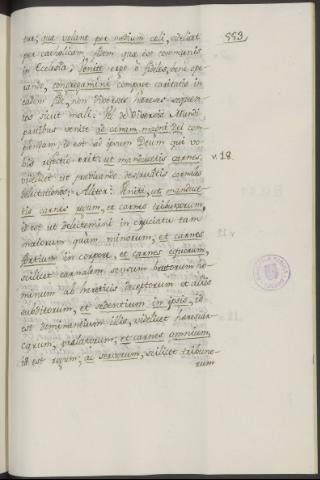 tur; quæ volant per medium cæli, videlicet
per catholicam fidem quæ est communis
in Ecclesia; Venite ergo ô fideles, bene ope-
rando, congregamini compage caritatis in
eadem fide, non diversas hæreses sequen-
tes sicut mali. Vel de diversis Mundi
partibus venite ad cænam magni Dei com-
parandam, id est ad ipsum Deum qui vo-
bis refectio erit: ut manducetis carnes,
videlicet ut probando destruatis carnales
delectationes: Aliter: Venite, ut mandu-
tis carnes regum, et carnes tribunorum,
id est ut delectemini in cruciatu tam
maiorum quam minorum, et carnes
fortium in corpore, et carnes equorum,
scilicet carnalem sensum brutorum ho-
minum ab hæreticis deceptorum et illis
subditorum, et sedentium in ipsis, id
est dominantium illis, videlicet hæresiar-
carum, prælatorum; et carnes omnium,
id est regum; ac servorum, scilicet tribuno-
rum
553
v. 18.